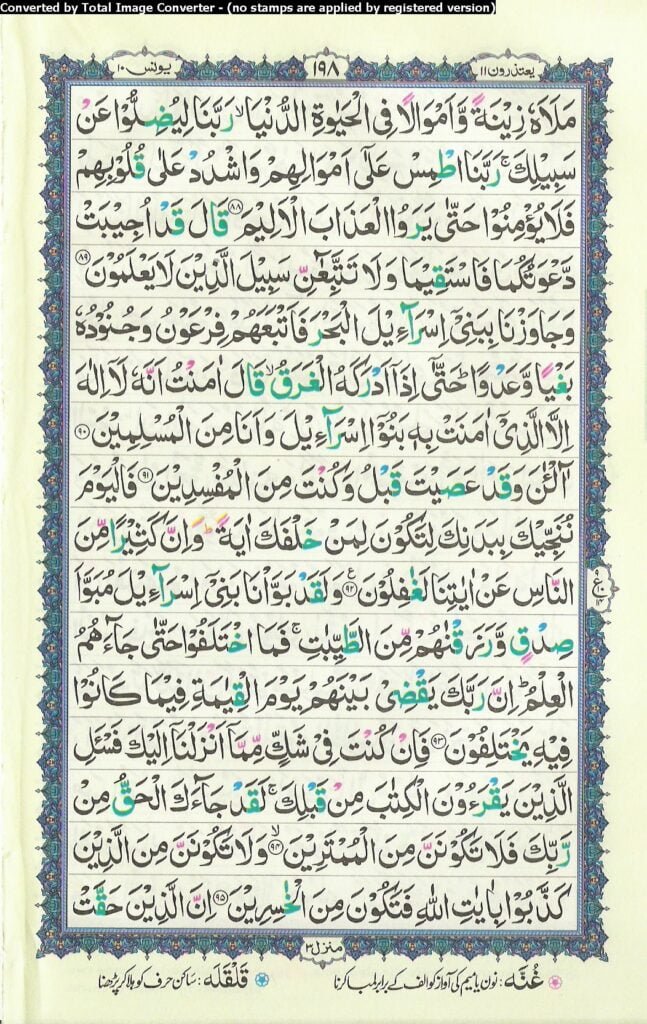 Converted by Total Image Converter - (no stamps are applied by registered version)
یعتذرون ۱۱
۱۹۸
یونس ۱۰
مَلَاَهٗ زِیْنَةً وَّاَمْوَالًا فِی الْحَیٰوةِ الدُّنْیَاۙ رَبَّنَا لِیُضِلُّوْا عَنْ
سَبِیْلِكَۚ رَبَّنَا اطْمِسْ عَلٰۤی اَمْوَالِهِمْ وَاشْدُدْ عَلٰی قُلُوْبِهِمْ
فَلَا یُؤْمِنُوْا حَتّٰی یَرَوُا الْعَذَابَ الْاَلِیْمَ ۸۸ قَالَ قَدْ اُجِیْبَتْ
دَّعْوَتُكُمَا فَاسْتَقِیْمَا وَلَا تَتَّبِعٰٓنِّ سَبِیْلَ الَّذِیْنَ لَا یَعْلَمُوْنَ ۸۹
وَجَاوَزْنَا بِبَنِیْۤ اِسْرَآءِیْلَ الْبَحْرَ فَاَتْبَعَهُمْ فِرْعَوْنُ وَجُنُوْدُهٗ
بَغْیًا وَّعَدْوًاؕ حَتّٰۤی اِذَاۤ اَدْرَكَهُ الْغَرَقُۙ قَالَ اٰمَنْتُ اَنَّهٗ لَاۤ اِلٰهَ
اِلَّا الَّذِیْۤ اٰمَنَتْ بِهٖ بَنُوْۤا اِسْرَآءِیْلَ وَاَنَا مِنَ الْمُسْلِمِیْنَ ۹۰
آٰلْـٰٔنَ وَقَدْ عَصَیْتَ قَبْلُ وَكُنْتَ مِنَ الْمُفْسِدِیْنَ ۹۱ فَالْیَوْمَ
نُنَجِّیْكَ بِبَدَنِكَ لِتَكُوْنَ لِمَنْ خَلْفَكَ اٰیَةًؕ وَاِنَّ كَثِیْرًا مِّنَ
النَّاسِ عَنْ اٰیٰتِنَا لَغٰفِلُوْنَ ۹۲ وَلَقَدْ بَوَّاْنَا بَنِیْۤ اِسْرَآءِیْلَ مُبَوَّاَ
صِدْقٍ وَّرَزَقْنٰهُمْ مِّنَ الطَّیِّبٰتِۚ فَمَا اخْتَلَفُوْا حَتّٰی جَآءَهُمُ
الْعِلْمُؕ اِنَّ رَبَّكَ یَقْضِیْ بَیْنَهُمْ یَوْمَ الْقِیٰمَةِ فِیْمَا كَانُوْا
فِیْهِ یَخْتَلِفُوْنَ ۹۳ فَاِنْ كُنْتَ فِیْ شَكٍّ مِّمَّاۤ اَنْزَلْنَاۤ اِلَیْكَ فَسْـَٔلِ
الَّذِیْنَ یَقْرَءُوْنَ الْكِتٰبَ مِنْ قَبْلِكَۚ لَقَدْ جَآءَكَ الْحَقُّ مِنْ
رَّبِّكَ فَلَا تَكُوْنَنَّ مِنَ الْمُمْتَرِیْنَۙ ۹۴ وَلَا تَكُوْنَنَّ مِنَ الَّذِیْنَ
كَذَّبُوْا بِاٰیٰتِ اللّٰهِ فَتَكُوْنَ مِنَ الْخٰسِرِیْنَ ۹۵ اِنَّ الَّذِیْنَ حَقَّتْ
منزل ۳
غُنَّه: نون یا میم کی آواز کو الف کے برابر لمبا کرنا
قَلْقَلَه: ساکن حرف کو ہلا کر پڑھنا